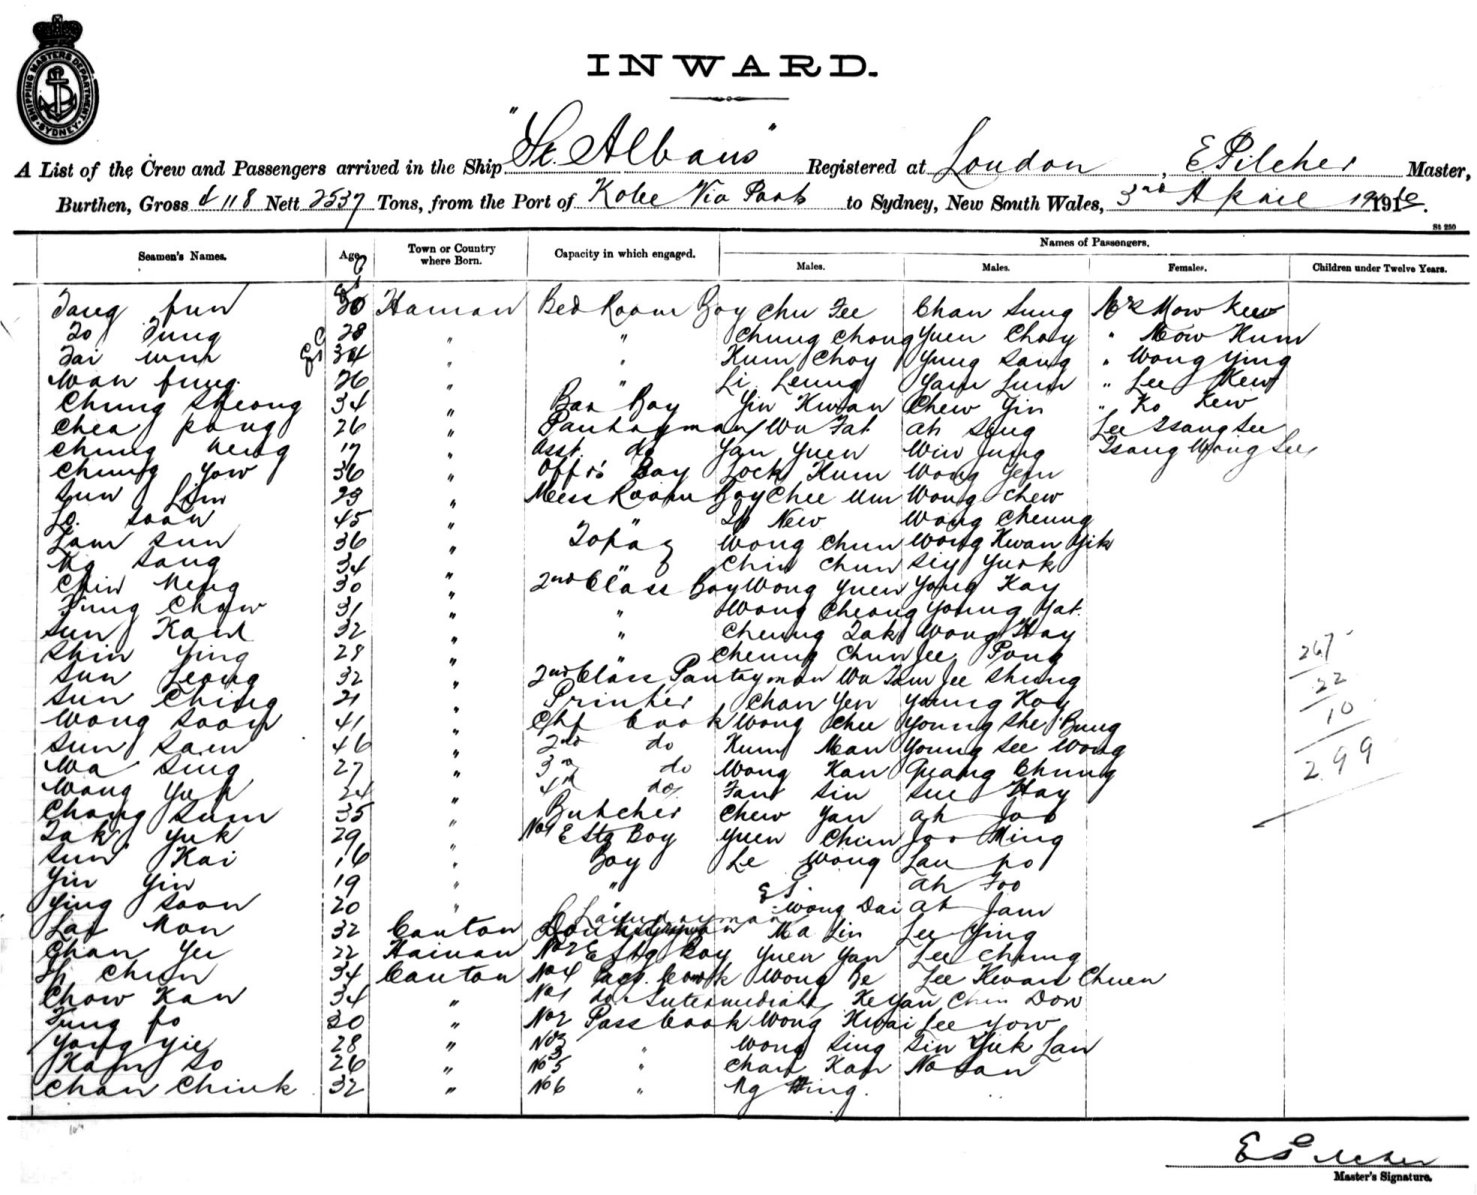 SHIPPING MASTERS DEPARTMENT SYDNEY
INWARD.
A List of the Crew and Passengers arrived in the Ship "St. Albans" Registered at London, E Pilcher Master,
Burthen, Gross 4118 Nett 2537 Tons, from the Port of Kobe Via Ports to Sydney, New South Wales, 3rd April 191
St 250
Seamen's Names. Age Town or Country where Born. Capacity in which engaged. Names of Passengers.
Males. Males. Females. Children under Twelve Years.
Hainan Bed Room Boy Chu Fee Chan Sung Mrs Mow Kew
To Tung 28 " " Chung Chong Yuen Choy " Mow Kum
Tai 34 " " Kum Choy Yung Sang " Wong Ying
Wan Fung 26 " " Li Leung Yam Lum " Lee Kew
Chung Sheong 34 " Bar Boy Yin Kwan Chew Yin " Ko Kew
Chea Kong 26 " Pantryman Wu Fat Ah Sing Lee Tsang See
Chung Heng 17 " Asst. do Yan Yuen Win Jung Tsang Wong See
Chung Yow 36 " Offrs Boy Lock Kum Wong Yen
Sun Lim 29 " Mess Room Boy Chee Um Wong Chew
Le Soon 45 " " New Wong Cheung
Lam Sun 36 " Topaz Wong Chun Wong Kwan Yik
Ng Sang 34 " " Chin Chun Siy Yuok
Chin Meng 30 " 2nd Class Boy Wong Yuen Yong Kay
Fung Chow 31 " " Wong Cheong Young Yat.
Sun Kam 32 " " Cheung Tak Wong Hay
Shin Ying 28 " " Cheung Chun Lee Pong
Sun Leong 32 " 2nd Class Pantryman Wu Tam Lee Shung
Sun Ching 21 " Printer Chan Yen Young Koy
Wong Soon 41 " Chf Cook Wong Chee Young She Bung
Sun Saen 46 " 2nd do Kum Man Young See Wong
Wa Sing 27 " 3rd do Wong Kan Quang Chung
Wong Yuen 24 " 4th do Fan Sin Sue Hay
Chong Sum 35 " Butcher Chew Yan Ah Joo
Tak Yuk 29 " No 1 E Stg Boy Yuen Chun Joo Ming
Sun Kai 16 " Boy Le Wong Lau Po
Yin Yin 19 " " Ah Foo
Ying Soon 20 " " Wong Dai Ah Jam
Laf Mon 32 Canton Laundayman Ma Lin Lee Ying
Chan Yee 22 Hainan No 2 E Stg Boy Yuen Yan Lee Chung
Li Chun 34 Canton No 4 Cook Wong Be Lee Kwan Chuen
Chow Kan 34 " No 1 do Intermediate Ke Yan Chin Don
Fung Fo 30 " No 2 Pass Cook Wong Kwai Lee Yow
Yong Yie 28 " No 3 " Wong Sing Sin Yuk Lan
Kam So 26 " No 5 " Chan Kan No San
Chan Chiuk 32 " No 6 " Ng Hing.
267
22
10
299
E Pilcher
Master's Signature.